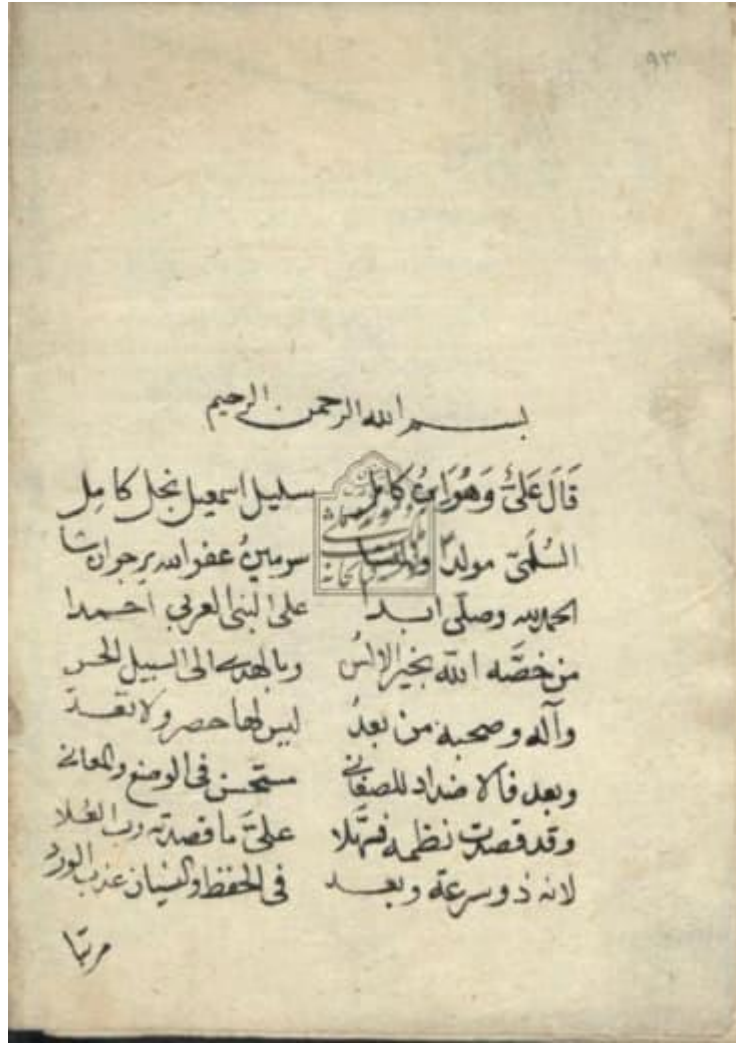 ٩٣
بسم الله الرحمن الرحيم
قَالَ عَلَيٌّ وَهُوَ ابْنُ كامل سليل اسمعيل نجل كامِل
السُلَمّى مولدًا سومينُ عفو الله يرجو ان شا
الحمد لله وصلى ابدا على النبى العربي احمدا
من خصَّه الله بخير الالسُن وبالهدى الى السبيل الحسن
وآله وصحبه من بعدُ ليس لها حصر ولا تعدّ
وبعد فالاضداد للصغانى مستحسن فى الوضع والمعانى
وقد قصدت نظمه فسهّلا علىَّ ما قصدته رب العُلا
لانه ذو سرعة وبعد فى الحفظ والنسيان عذب الورد
مرتبا